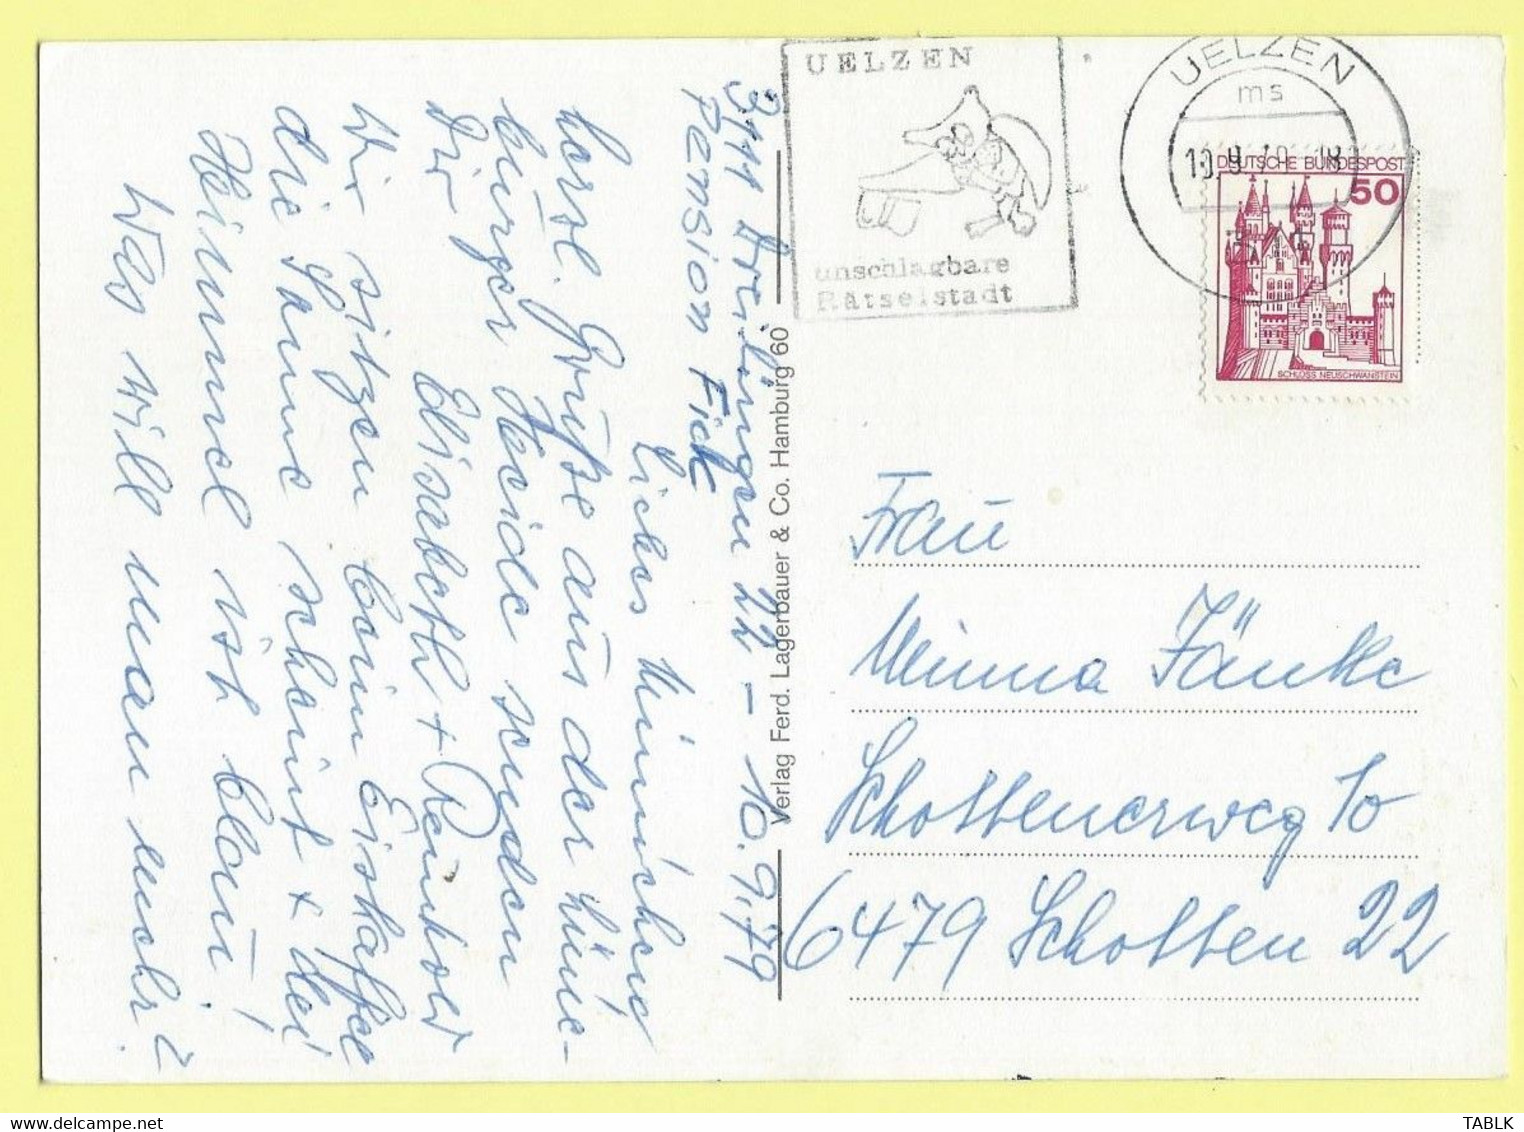 3111 Dreilingen 22 - 10.9.79
Pension Fick
Liebes Minnchen,
herzl. Grüße aus der Lüne-
burger Heide senden
Dir
Elisabeth + Reinhold
Wir sitzen beim Eiskaffee
die Sonne scheint + der
Himmel ist blau!
Was will man mehr?
Verlag Ferd. Lagerbauer & Co. Hamburg 60
UELZEN
unschlagbare
Rätselstadt
UELZEN
ms
DEUTSCHE BUNDESPOST
50
SCHLOSS NEUSCHWANSTEIN
Frau
Minna Jänke
Schottenerweg 10
6479 Schotten 22
TABLK